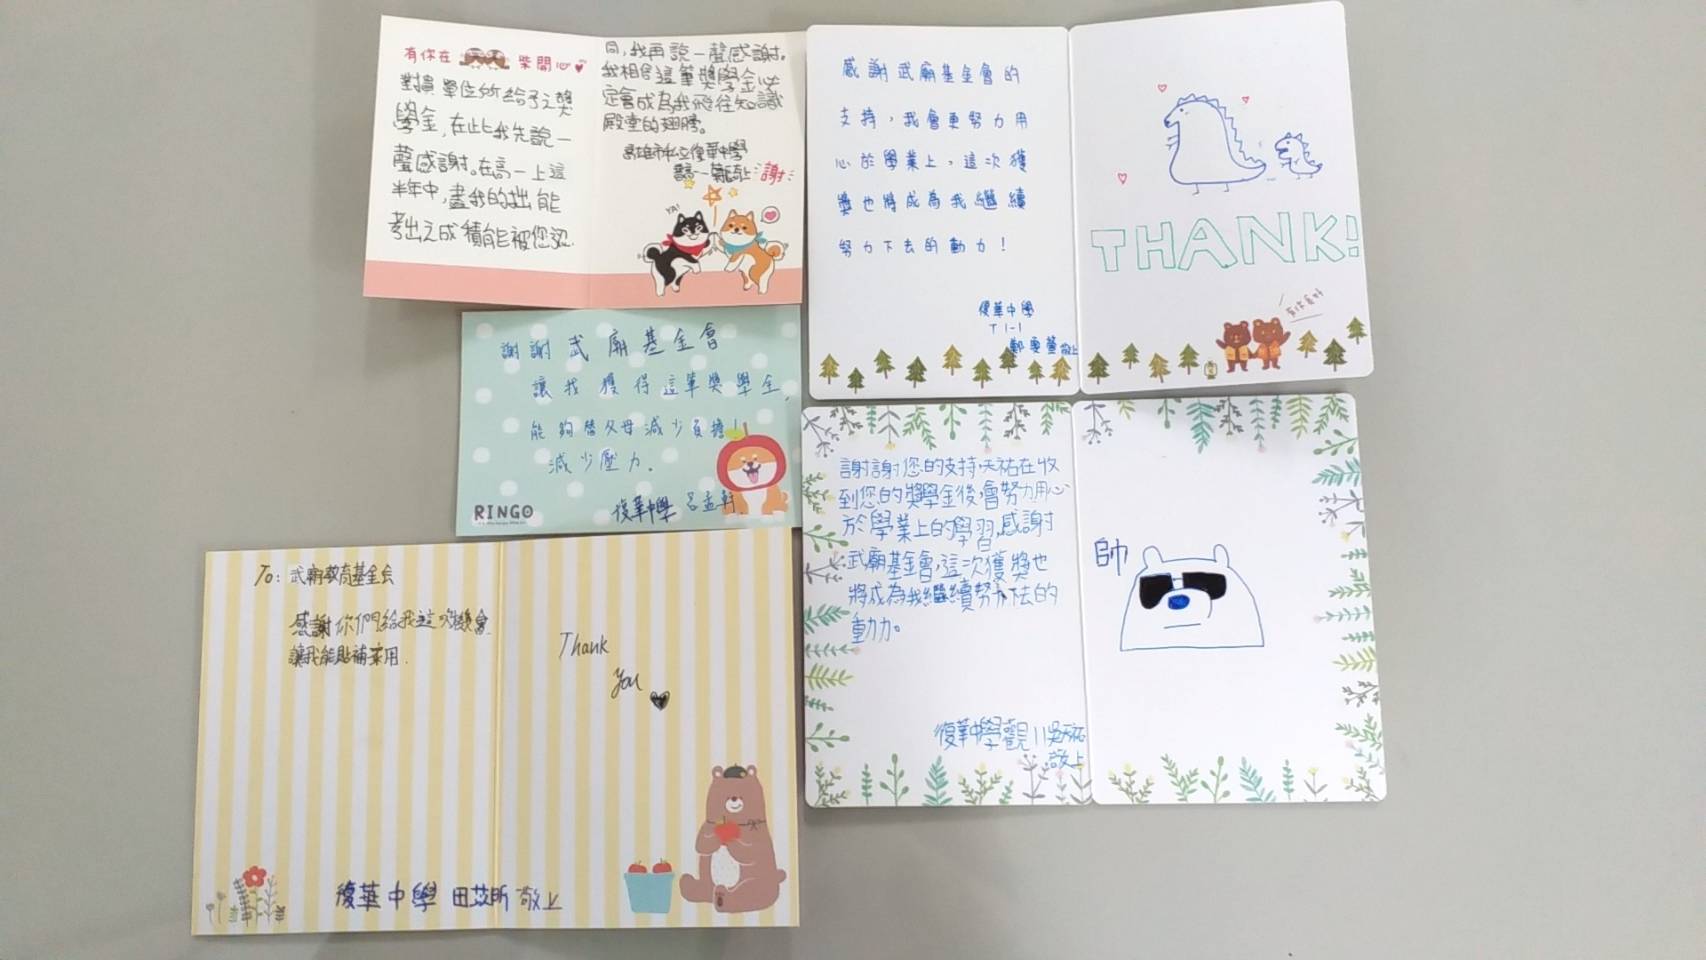 有你在
柴開心
對貴單位所給予之獎
學金,在此我先說一
聲感謝。在高一上這
半年中,盡我的拙能
考出之成積能被您認
同,我再說一聲感謝。
我相信這筆獎學金必
定會成為我飛往知識
殿堂的翅膀。
高雄市私立復華中學
謝
YA!
感謝武廟基金會的
支持,我會更努力用
心於學業上,這次獲
獎也將成為我繼續
努力下去的動力!
復華中學
T1-1
敬上
THANK!
有你真好
謝謝武廟基金會
讓我獲得這筆獎學金,
能夠替父母減少負擔!
減少壓力.
復華中學 呂孟軒
RINGO
謝謝您的支持,天祐在收
到您的獎學金後,會努力用心
於學業上的學習,感謝
武廟基金會,這次獲獎也
將成為我繼續努力下去的
動力。
復華中學觀11吳天祐
敬上
帥
To: 武廟教育基金会
感謝你們給我這次機會.
讓我能貼補家用.
復華中學 田苡昕 敬上
Thank
You